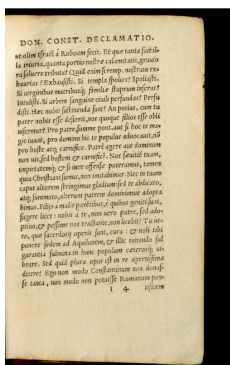 DON. CONST. DECLAMATIO.
ut olim Israël à Roboam fecit. Et quæ tanta fuit il-
la iniuria, quanta portio nostræ calamitatis, gravio
ra soluere tributa? Quid enim si remp. nostram ex-
haurias? Exhausisti. Si templa spolies? Spoliasti.
Si virginibus matribusq; familiæ stuprum inferas?
Intulisti. Si urbem sanguine civili perfundas? Perfu
disti. Hæc nobis sustinenda sunt? An potius, cum tu
pater nobis esse desieris, nos quoque filios esse obli
uiscemur? Pro patre, summe pont. aut si hoc te ma-
gis iuuat, pro domino hic te populus aduocauit, nō
pro hoste atq; carnifice. Patrē agere aut dominum
non uis, sed hostem & carnificē. Nos sæuitiā tuam,
impietatemq; & si iure offensæ poteramus, tamen
quia Christiani sumus, non imitabimur. Nec in tuum
caput ultorem stringimus gladium: sed te abdicato,
atq; summoto, alterum patrem dominumue adopta
bimus. Filijs à malis parētibus, à quibus geniti sunt,
fugere licet: nobis à te, non uero patre, sed ado-
ptiuo, & pessime nos tractante, non licebit? Tu ue-
ro, quæ sacerdotij operis sunt, cura: & noli tibi
ponere sedem ad Aquilonem, & illic tonando ful
gurantia fulmina in hunc populum cæterosq; ui-
brare. Sed quid plura opus est in re apertissima
dicere? Ego non modo Constantinum non donas-
se tanta, non modo non potuisse Romanum pon-
I 4 tificem